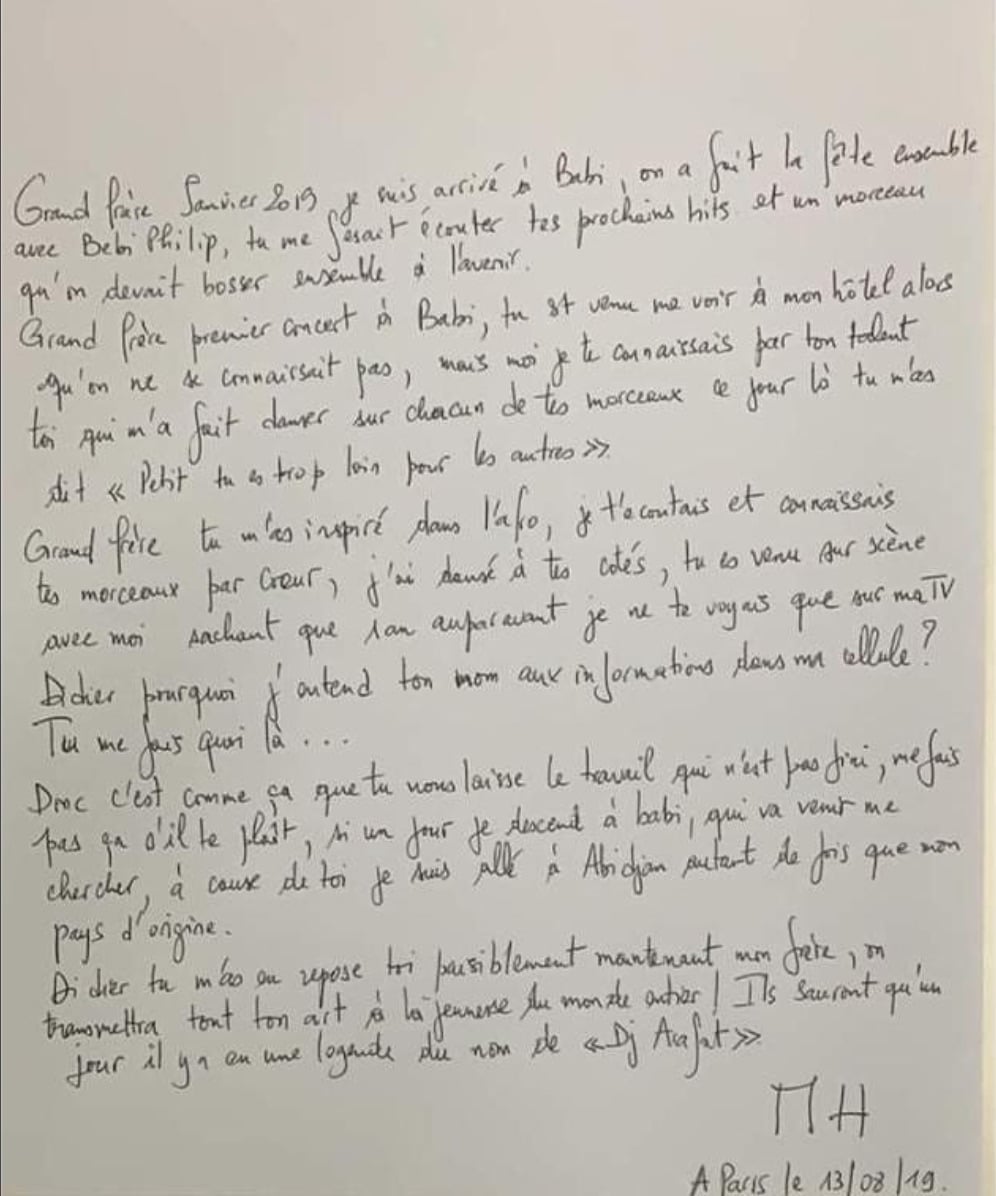 Grand frère Janvier 2019 je suis arrivé à Babi, on a fait la fête ensemble
avec Bebi Philip, tu me fesait écouter tes prochains hits et un morceau
qu'on devait bosser ensemble à l'avenir.
Grand frère premier concert à Babi, tu et venu me voir à mon hôtel alors
qu'on ne se connaissait pas, mais moi je te connaissais par ton talent
toi qui m'a fait danser sur chacun de tes morceaux ce jour là tu m'as
dit « Petit tu es trop loin pour les autres »
Grand frère tu m'as inspiré dans l'afro, je t'écoutais et connaissais
tes morceaux par Cœur, j'ai dansé à tes cotés, tu es venu sur scène
avec moi sachant que 1 an auparavant je ne te voyais que sur ma TV
Didier pourquoi j'entend ton nom aux informations dans ma cellule?
Tu me fais quoi là ...
Donc c'est comme ça que tu nous laisse le travail qui n'est pas fini, me fais
pas ça s'il te plaît, si un jour je descend à babi, qui va venir me
chercher, à cause de toi je suis allé à Abidjan autant de fois que mon
pays d'origine.
Didier tu m'as eu repose toi paisiblement maintenant mon frère, on
transmettra tout ton art à la jeunesse du monde entier! Ils sauront qu'un
jour il y a eu une légende du nom de « Dj Arafat »
MH
A Paris le 13/08/19.